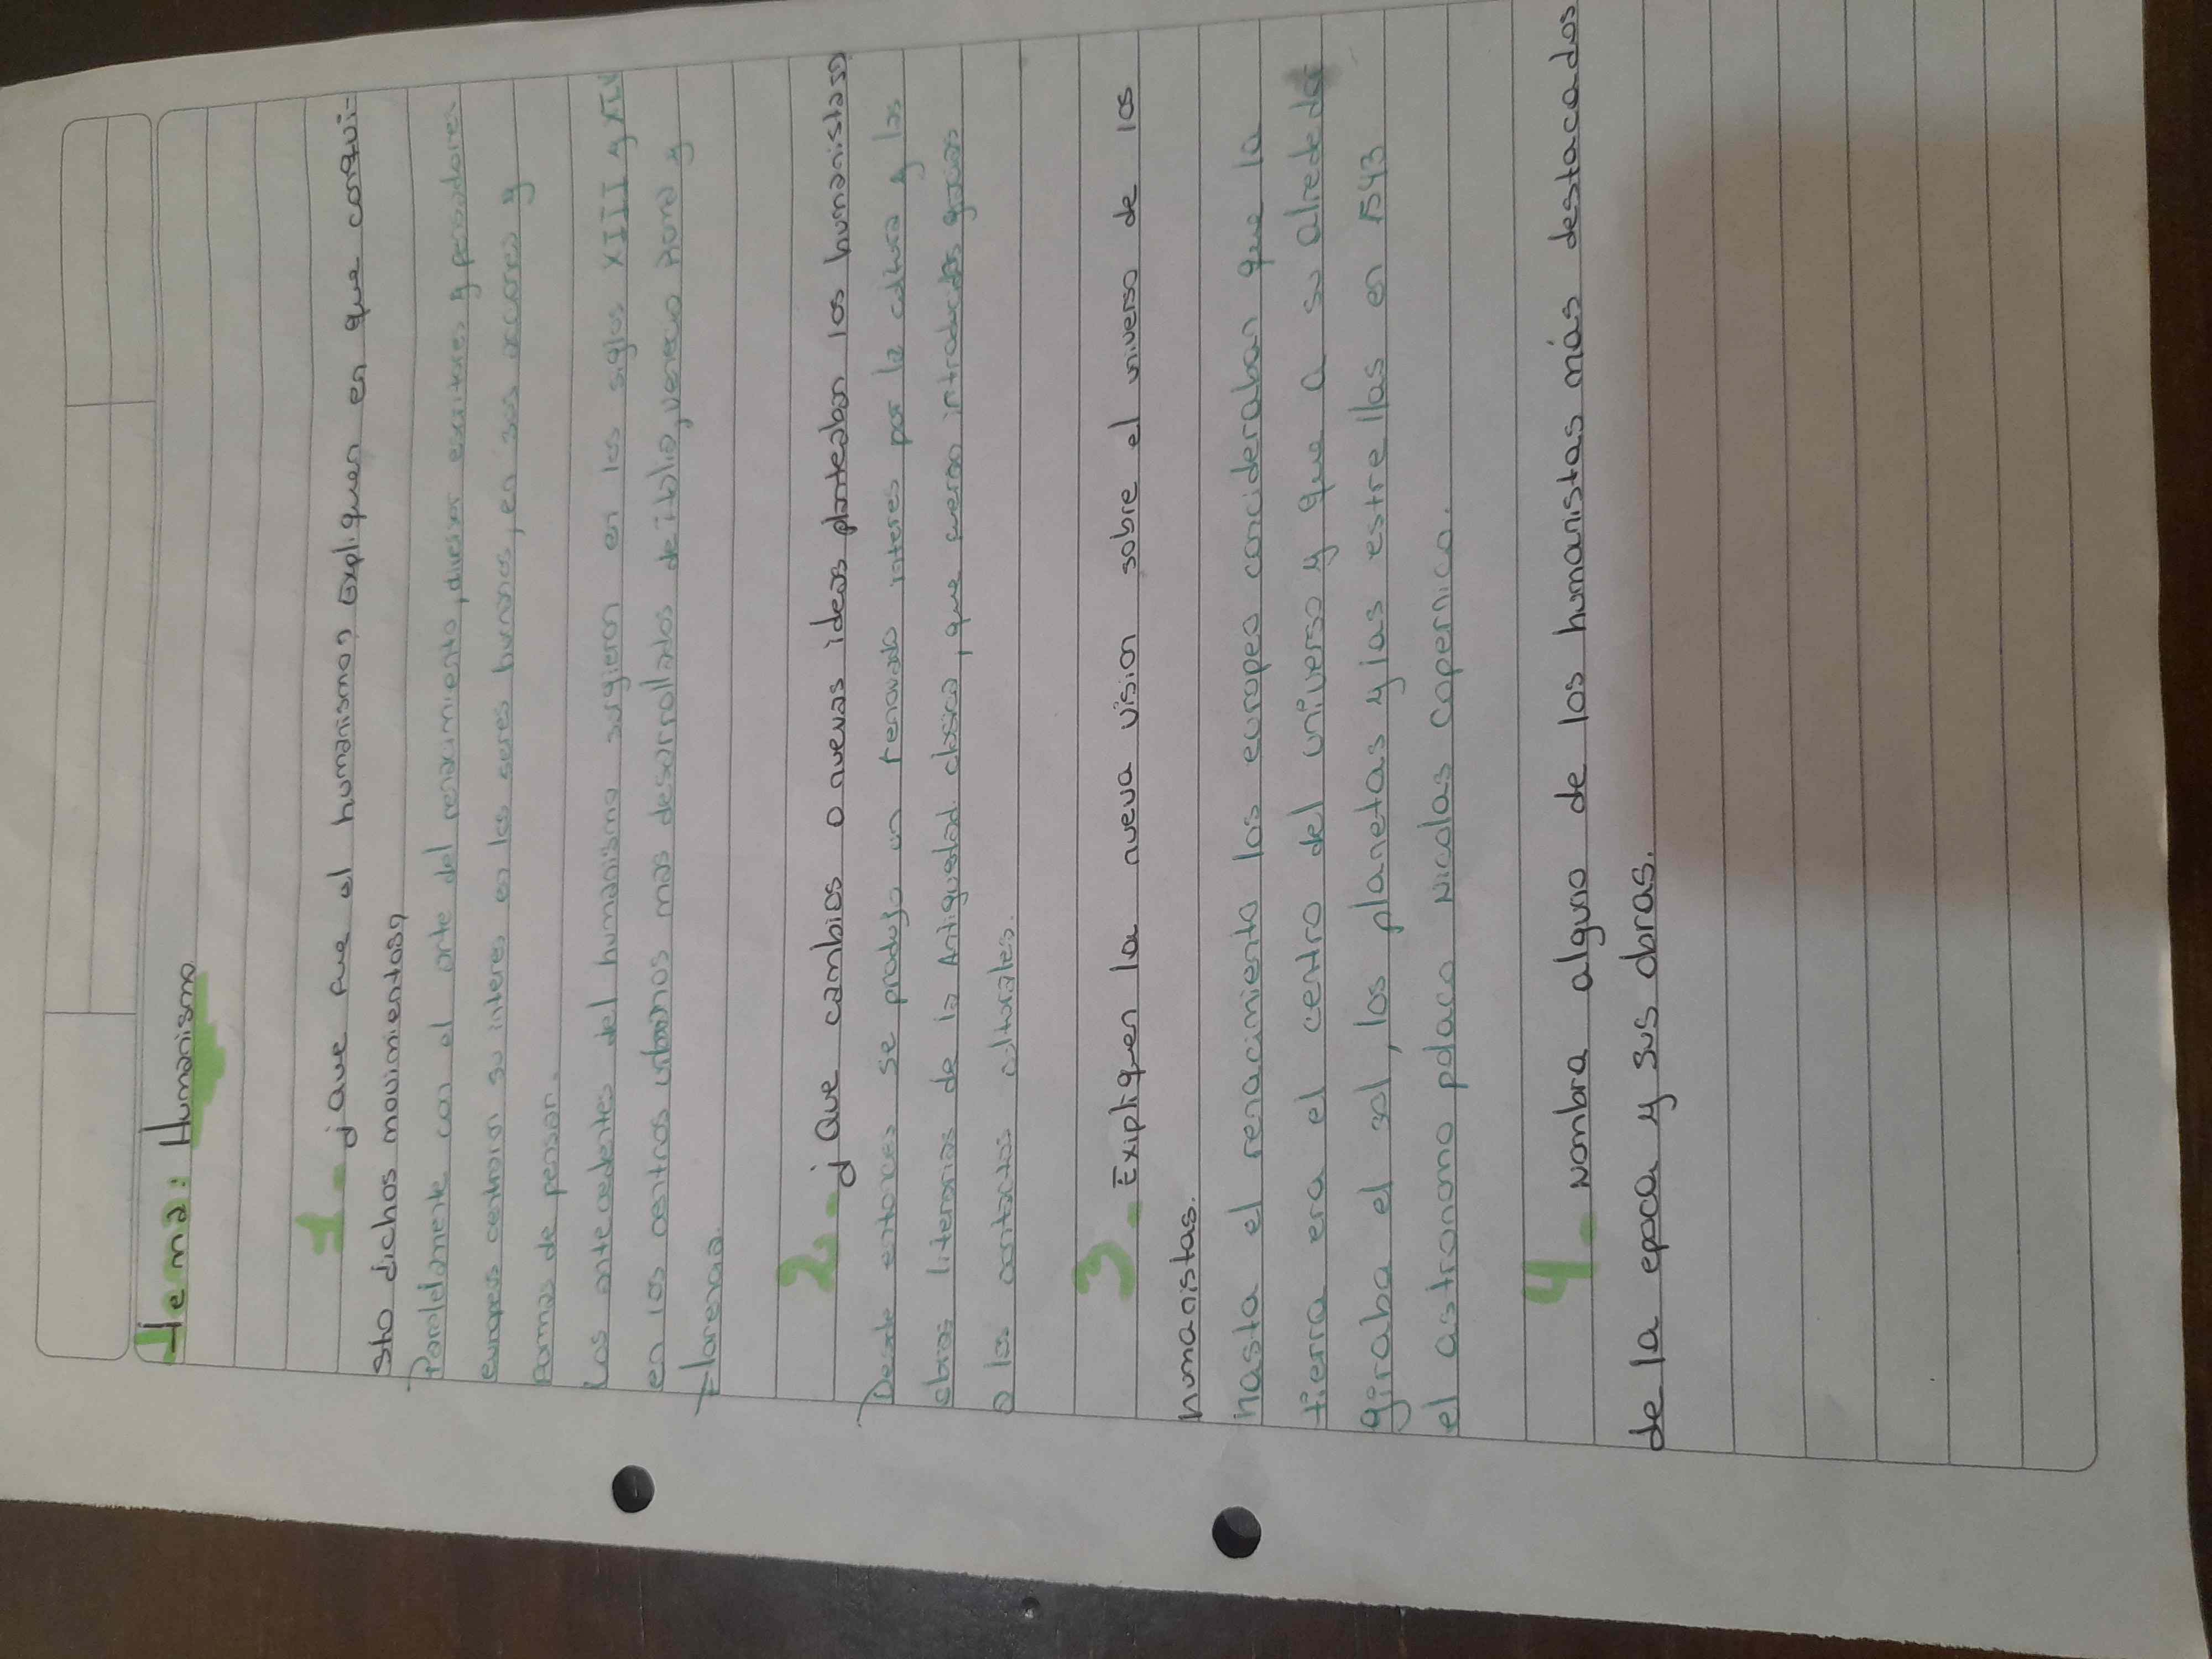 Tema: Humanismo
1- ¿Que fue el humanismo? Expliquen en que consi-
sto dichos movimientos?
Paralelamente con el arte del renacimiento, diversos escritores y pensadores
europeos centraron su interes en los seres humanos, en sus acciones y
formas de pensar.
Los antecedentes del humanismo surgieron en los siglos XIII y XIV
en los centros urbanos mas desarrollados de itblia, veneco Roma y
Florencia.
2- ¿Que cambios o nuevas ideas planteaban los humanistas?
Desde entonces se produjo un renovado interes por la cultura y las
obras literarias de la Antiguedad clasica, que fueron introducidas gracias
a los contactos culturales.
3- Exipliquen la nueva vision sobre el universo de los
humanistas.
hasta el renacimiento los europeo conciderabon que la
tierra era el centro del universo y que a su alrededor
giraba el sol, los planetas y las estrellas en 1543
el astronomo polaco Nicolas copernico.
4- Nombra alguno de los humanistas más destacados
de la epoca y sus obras.